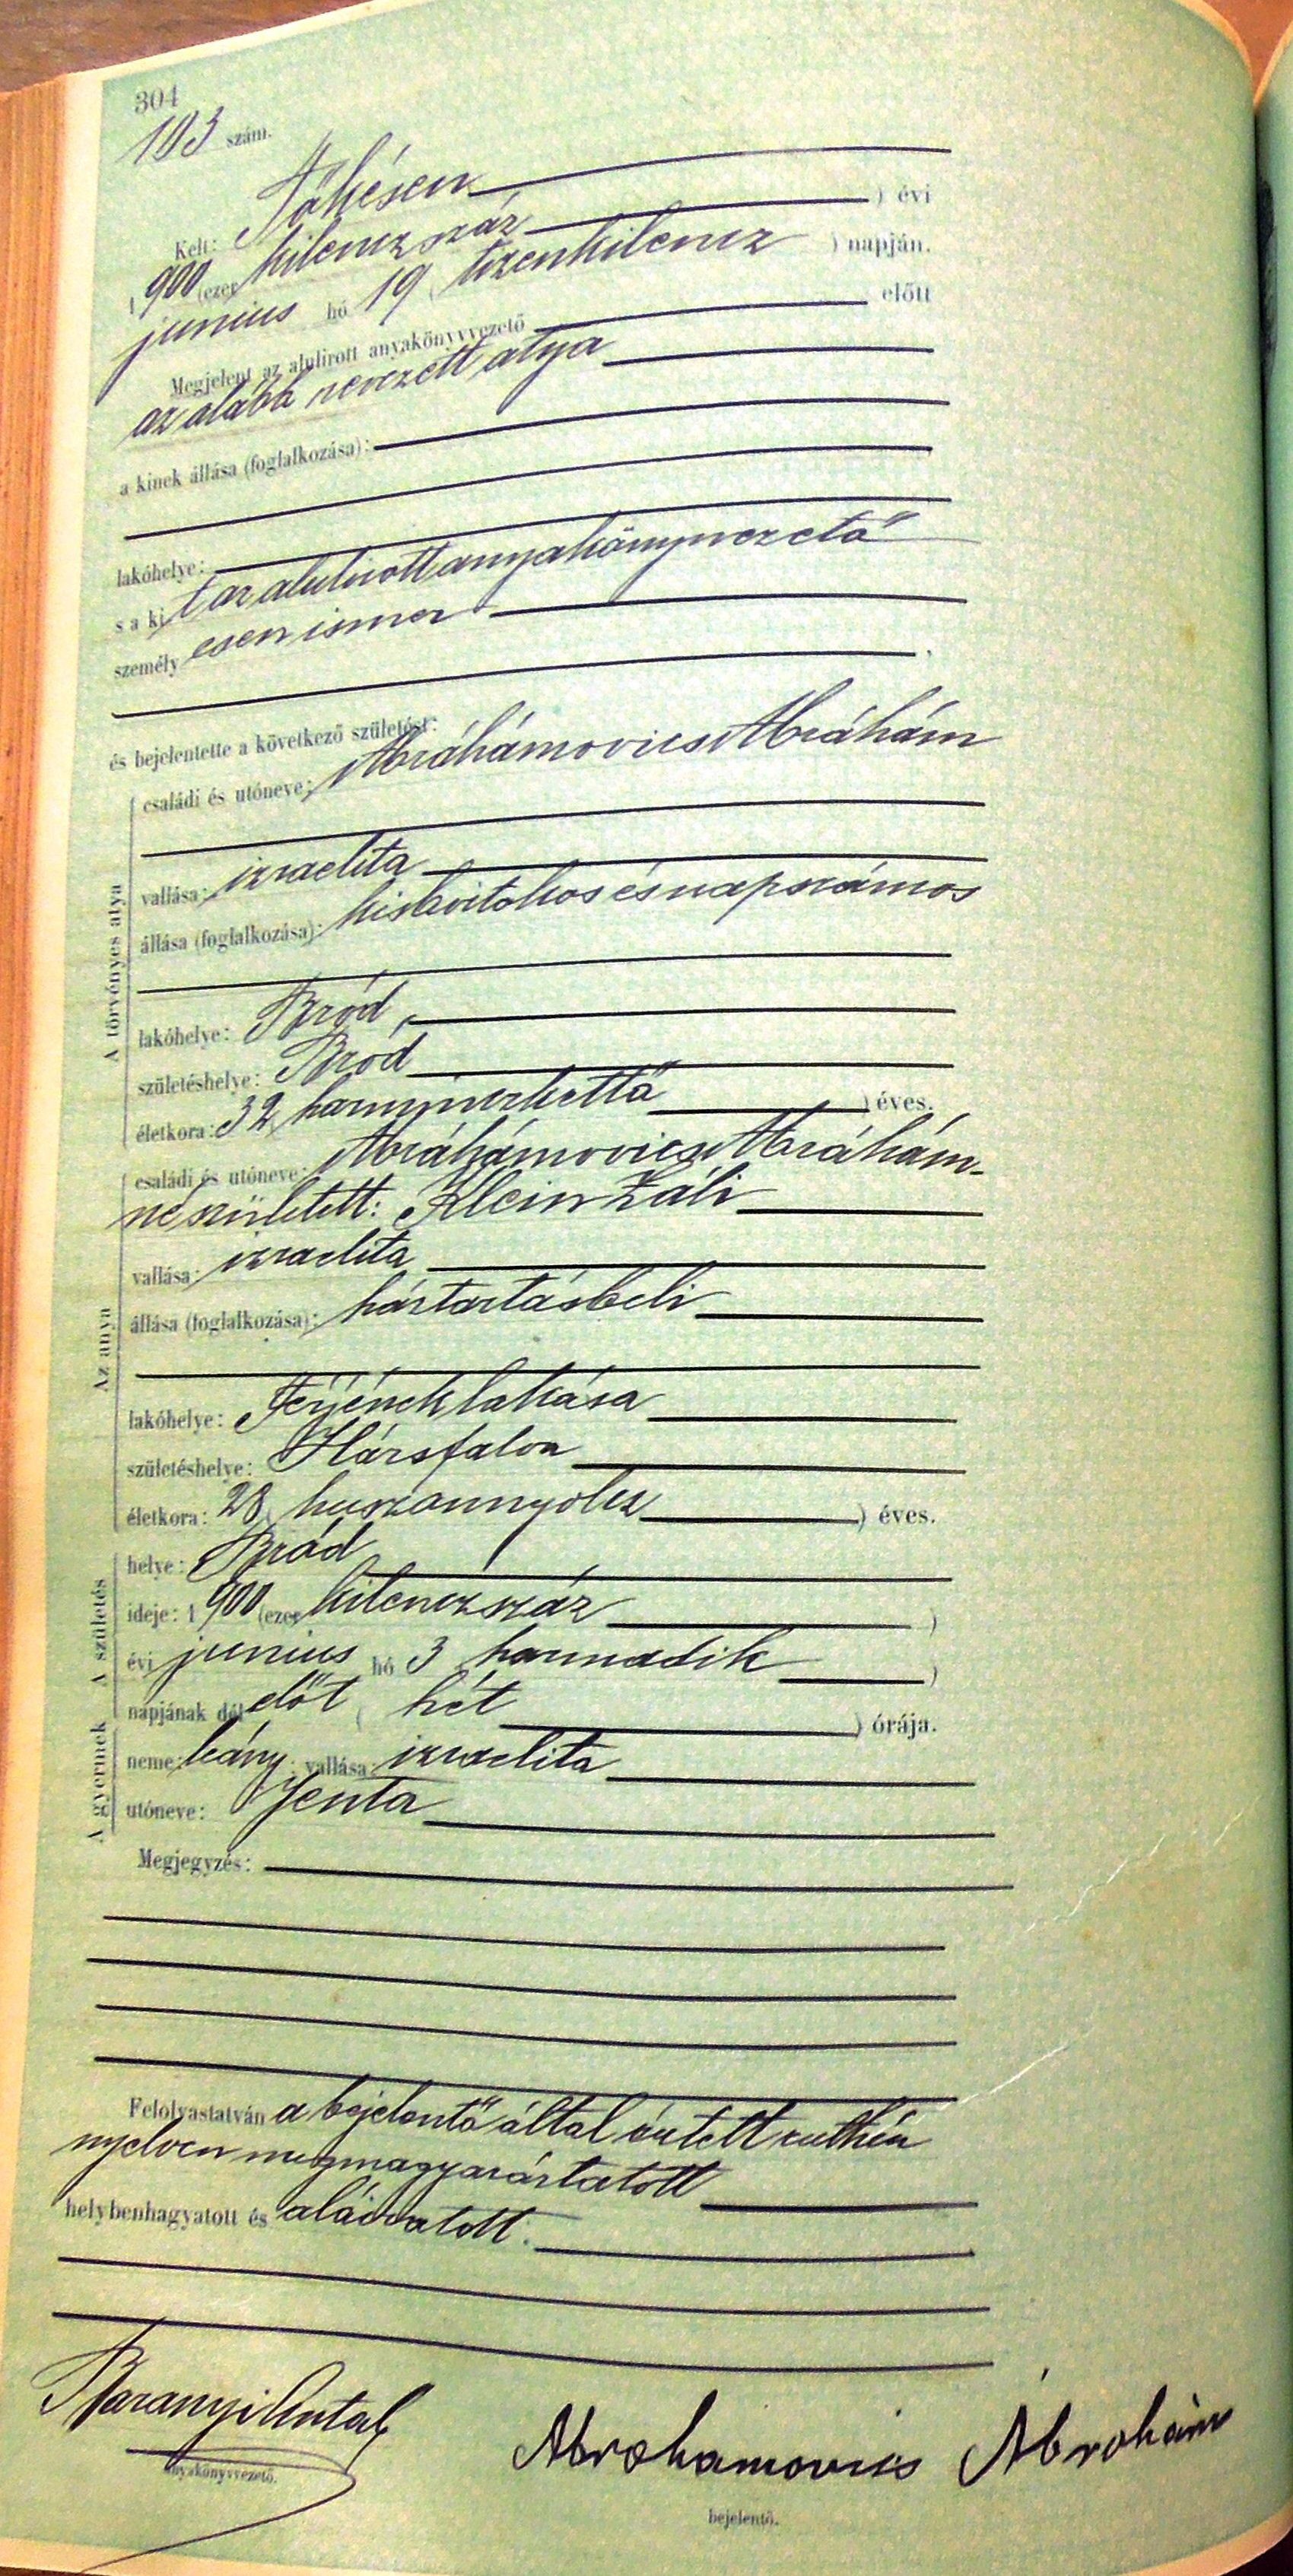 304
103 szám.
Kelt: Tőkésen
1900 (ezer kilenczszáz ) évi
junius hó 19 ( tizenkilencz ) napján.
Megjelent az alulirott anyakönyvvezető előtt
az alább nevezett atya
a kinek állása (foglalkozása):
lakóhelye:
s a kit az alulirott anyakönyvvezető
személyesen ismer
és bejelentette a következő születést:
A törvényes atya
családi és utóneve: Ábráhámovics Ábrahám
vallása: izraelita
állása (foglalkozása): kisbirtokos és napszámos
lakóhelye: Bród,
születéshelye: Bród
életkora: 32 ( harminczkettő ) éves.
Az anya
családi és utóneve: Ábráhámovics Ábrahám-
né született: Klein Záli
vallása: izraelita
állása (foglalkozása): háztartásbeli
lakóhelye: Férjének lakása
születéshelye: Hársfalva
életkora: 28 ( huszonnyolcz ) éves.
A születés
helye: Bród
ideje: 1900 (ezer kilenczszáz )
évi junius hó 3 harmadik )
napjának délelőt ( hét ) órája.
A gyermek
neme: leány; vallása: izraelita
utóneve: Jenta
Megjegyzés:
Felolvastatván a bejelentő által értett ruthén
nyelven megmagyaráztatott
helybenhagyatott és aláiratott.
Baranyi Antal
anyakönyvvezető.
Abrohamovics Abrohám
bejelentő.